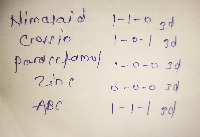 Nimapaid 1-1-0 3d
Crossin 1-0-1 3d
paracetamol 1-0-0 3d
Zinc 0-0-0 3d
ABC 1-1-1 3d